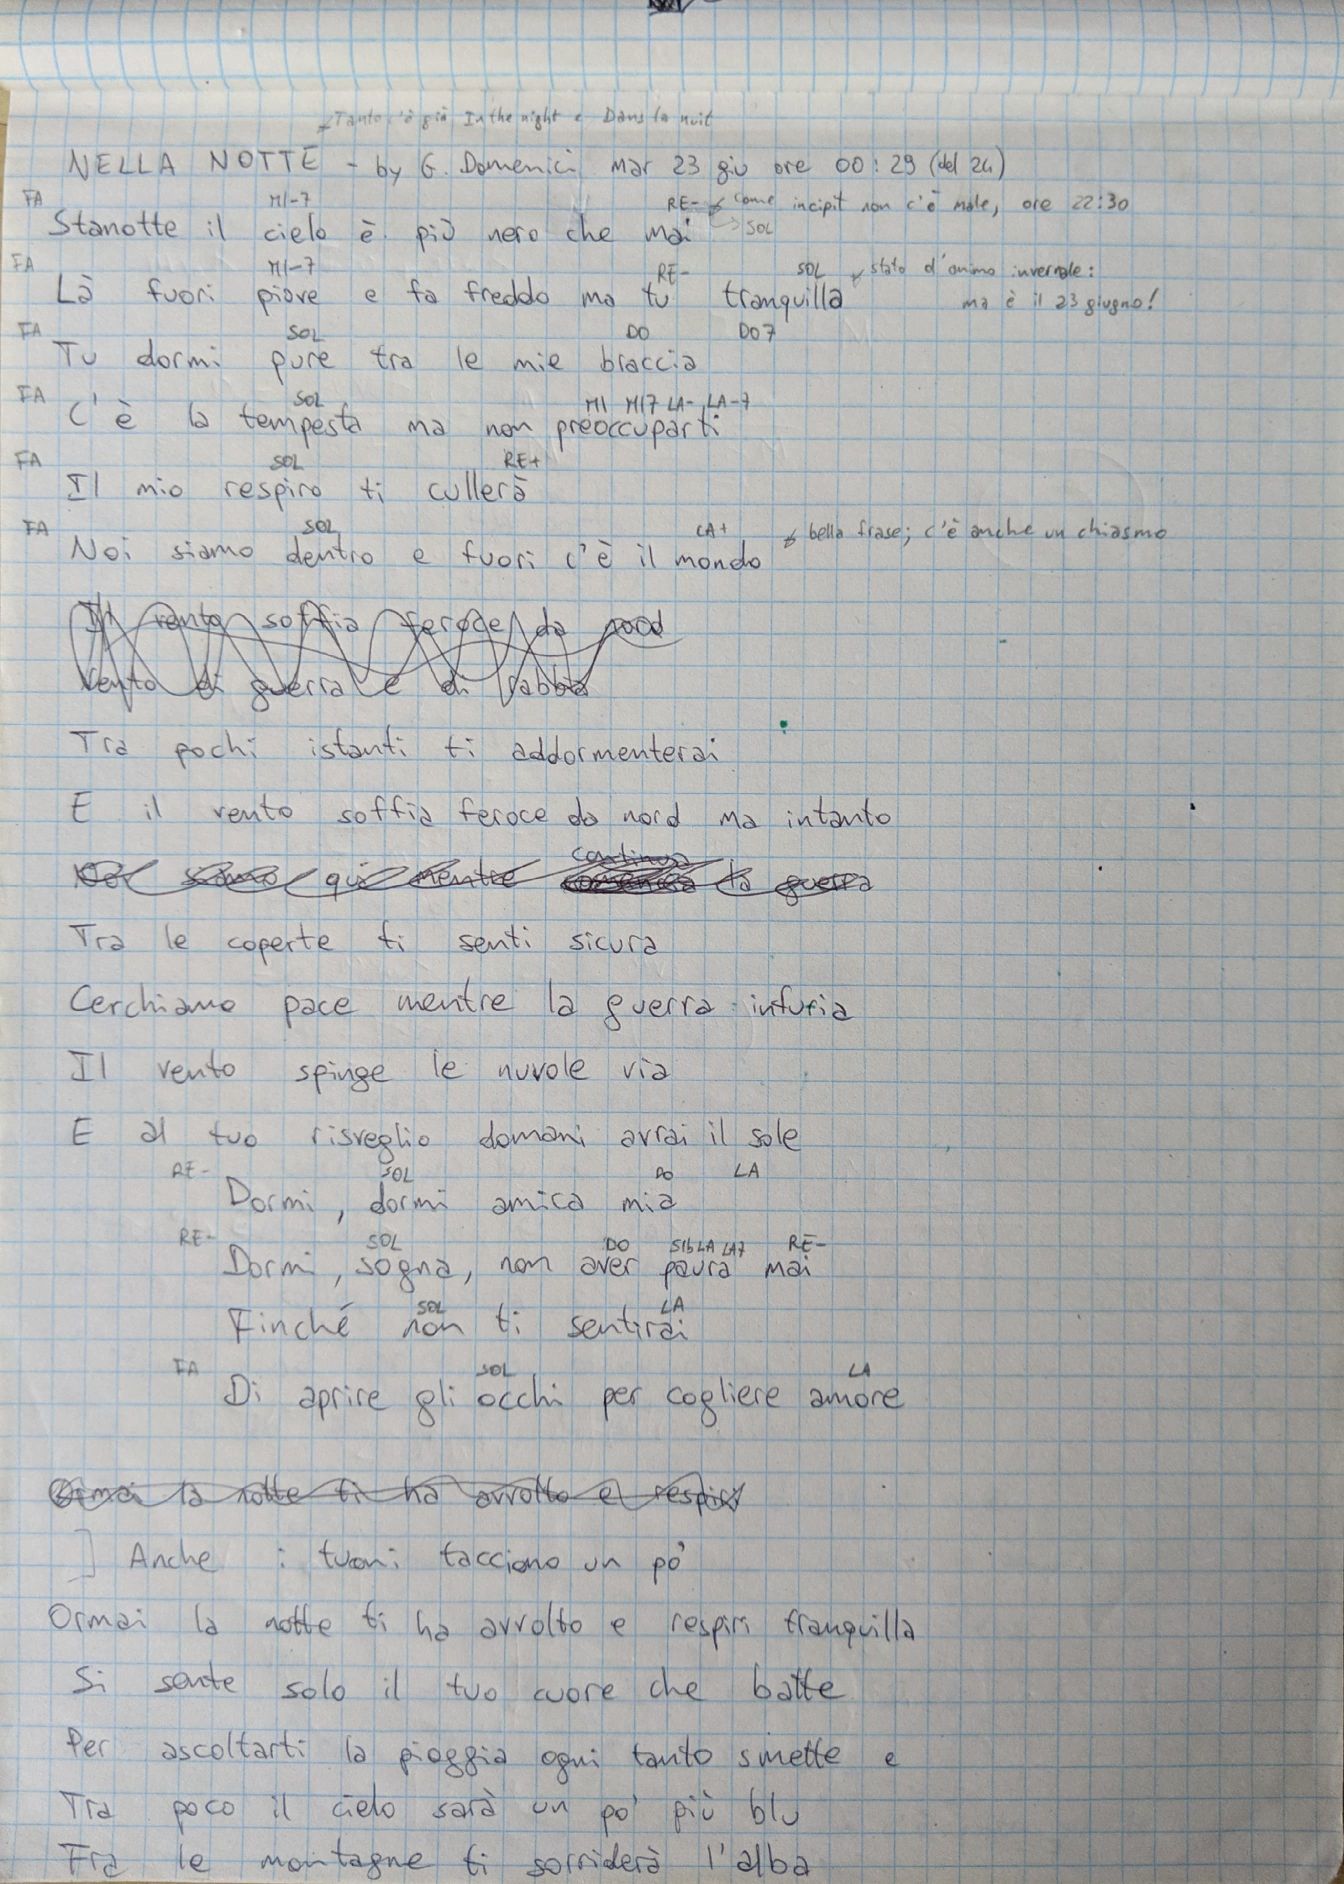 Tanto c'è già In the night e Dans la nuit
NELLA NOTTE - by G. Domenici mar 23 giu ore 00:29 (del 24)
FA MI-7 RE- come incipit non c'è male, ore 22:30
Stanotte il cielo è più nero che mai SOL
FA MI-7 RE- SOL stato d'animo invernale:
Là fuori piove e fa freddo ma tu tranquilla ma è il 23 giugno!
FA SOL DO DO7
Tu dormi pure tra le mie braccia
FA SOL MI MI7 LA- LA-7
C'è la tempesta ma non preoccuparti
FA SOL RE+
Il mio respiro ti cullerà
FA SOL LA+ bella frase; c'è anche un chiasmo
Noi siamo dentro e fuori c'è il mondo
Il vento soffia feroce da nord
Vento di guerra e di rabbia
Tra pochi istanti ti addormenterai
E il vento soffia feroce da nord ma intanto
continua
Noi siamo qui mentre comincia la guerra
Tra le coperte ti senti sicura
Cerchiamo pace mentre la guerra infuria
Il vento spinge le nuvole via
E al tuo risveglio domani avrai il sole
RE- SOL DO LA
Dormi, dormi amica mia
RE- SOL DO SIb LA LA7 RE-
Dormi, sogna, non aver paura mai
SOL LA
Finché non ti sentirai
FA SOL LA
Di aprire gli occhi per cogliere amore
Ormai la notte ti ha avvolto e respiri
] Anche i tuoni tacciono un pò
Ormai la notte ti ha avvolto e respiri tranquilla
Si sente solo il tuo cuore che batte
Per ascoltarti la pioggia ogni tanto smette e
Tra poco il cielo sarà un po' più blu
Fra le montagne ti sorriderà l'alba